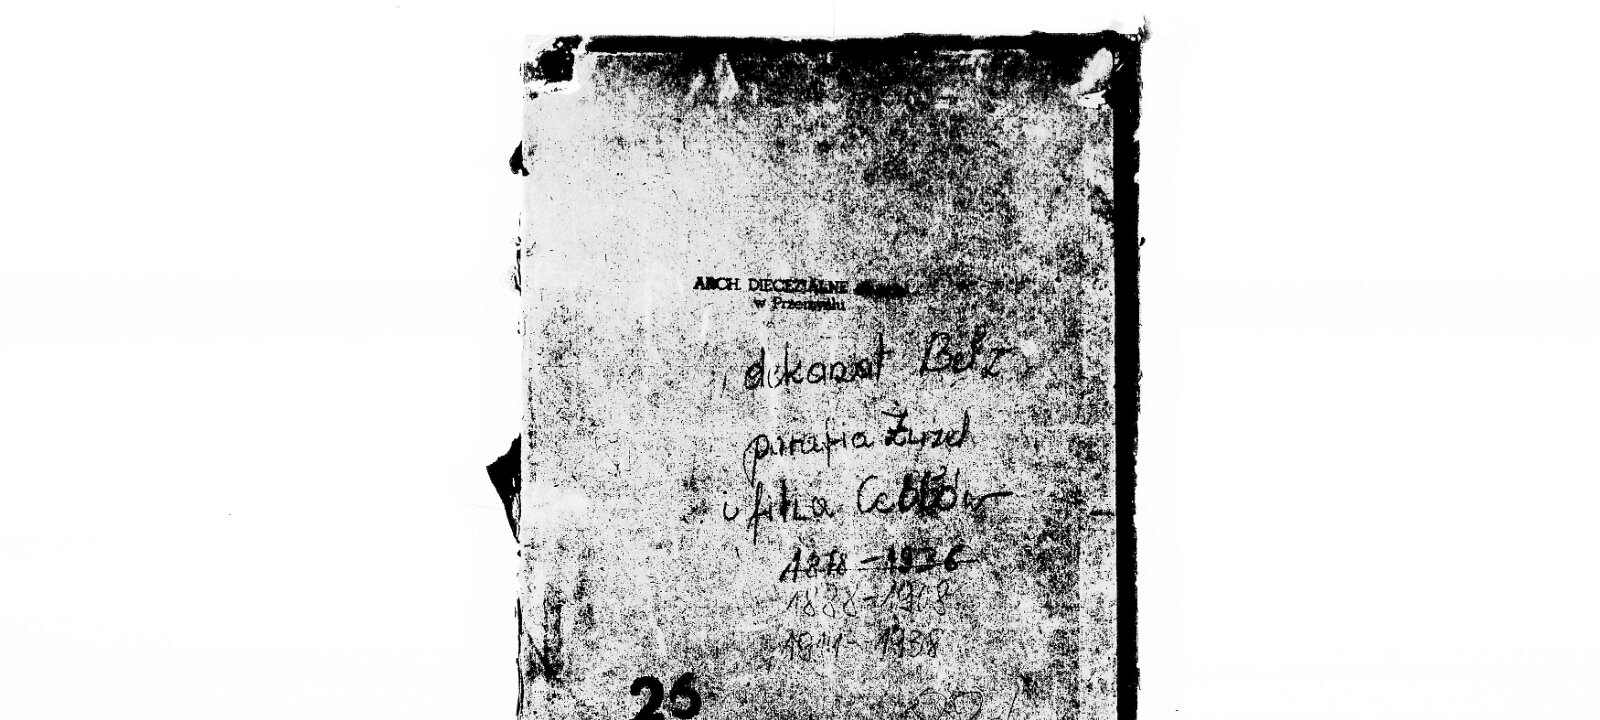 ARCH. DIECEZJALNE
w Przemyślu
dekanat Bełz
parafia Żużel
i filia Cebłów
1878-1936
1888-1908
1911-1938
26